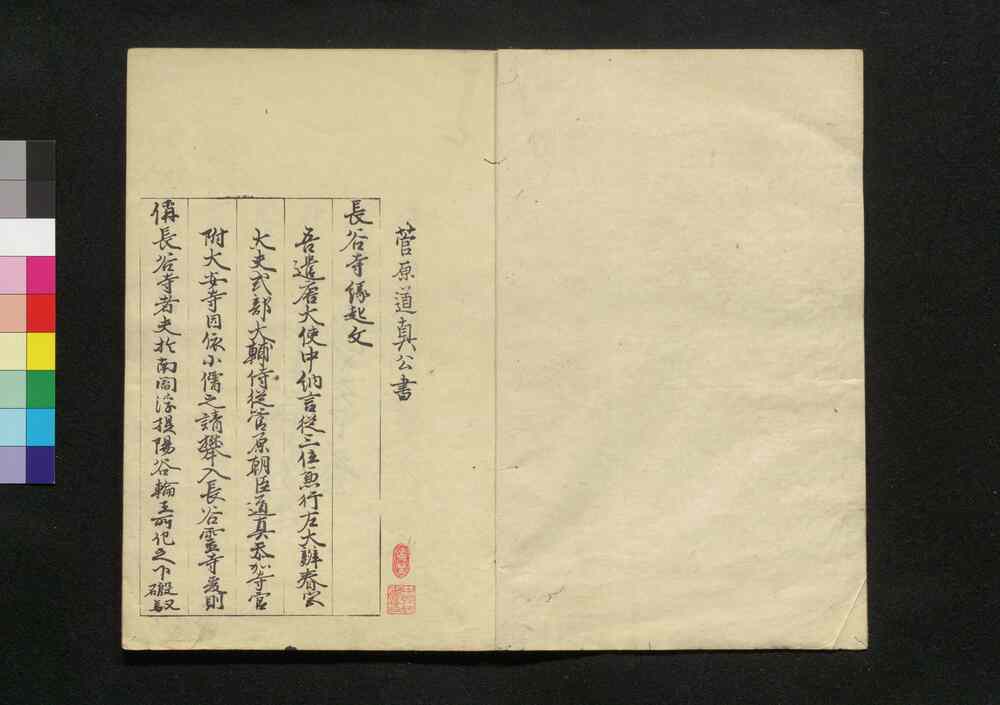 菅原道真公書
長谷寺縁起文
吾遣唐大使中納言従三位兼行左大辨春宮
大夫式部大輔侍従菅原朝臣道真忝加寺官
附大安寺因依小儒之請攀入長谷霊寺爰則
偁長谷寺者夫於南閻浮提陽谷輪王所化之下磤馭